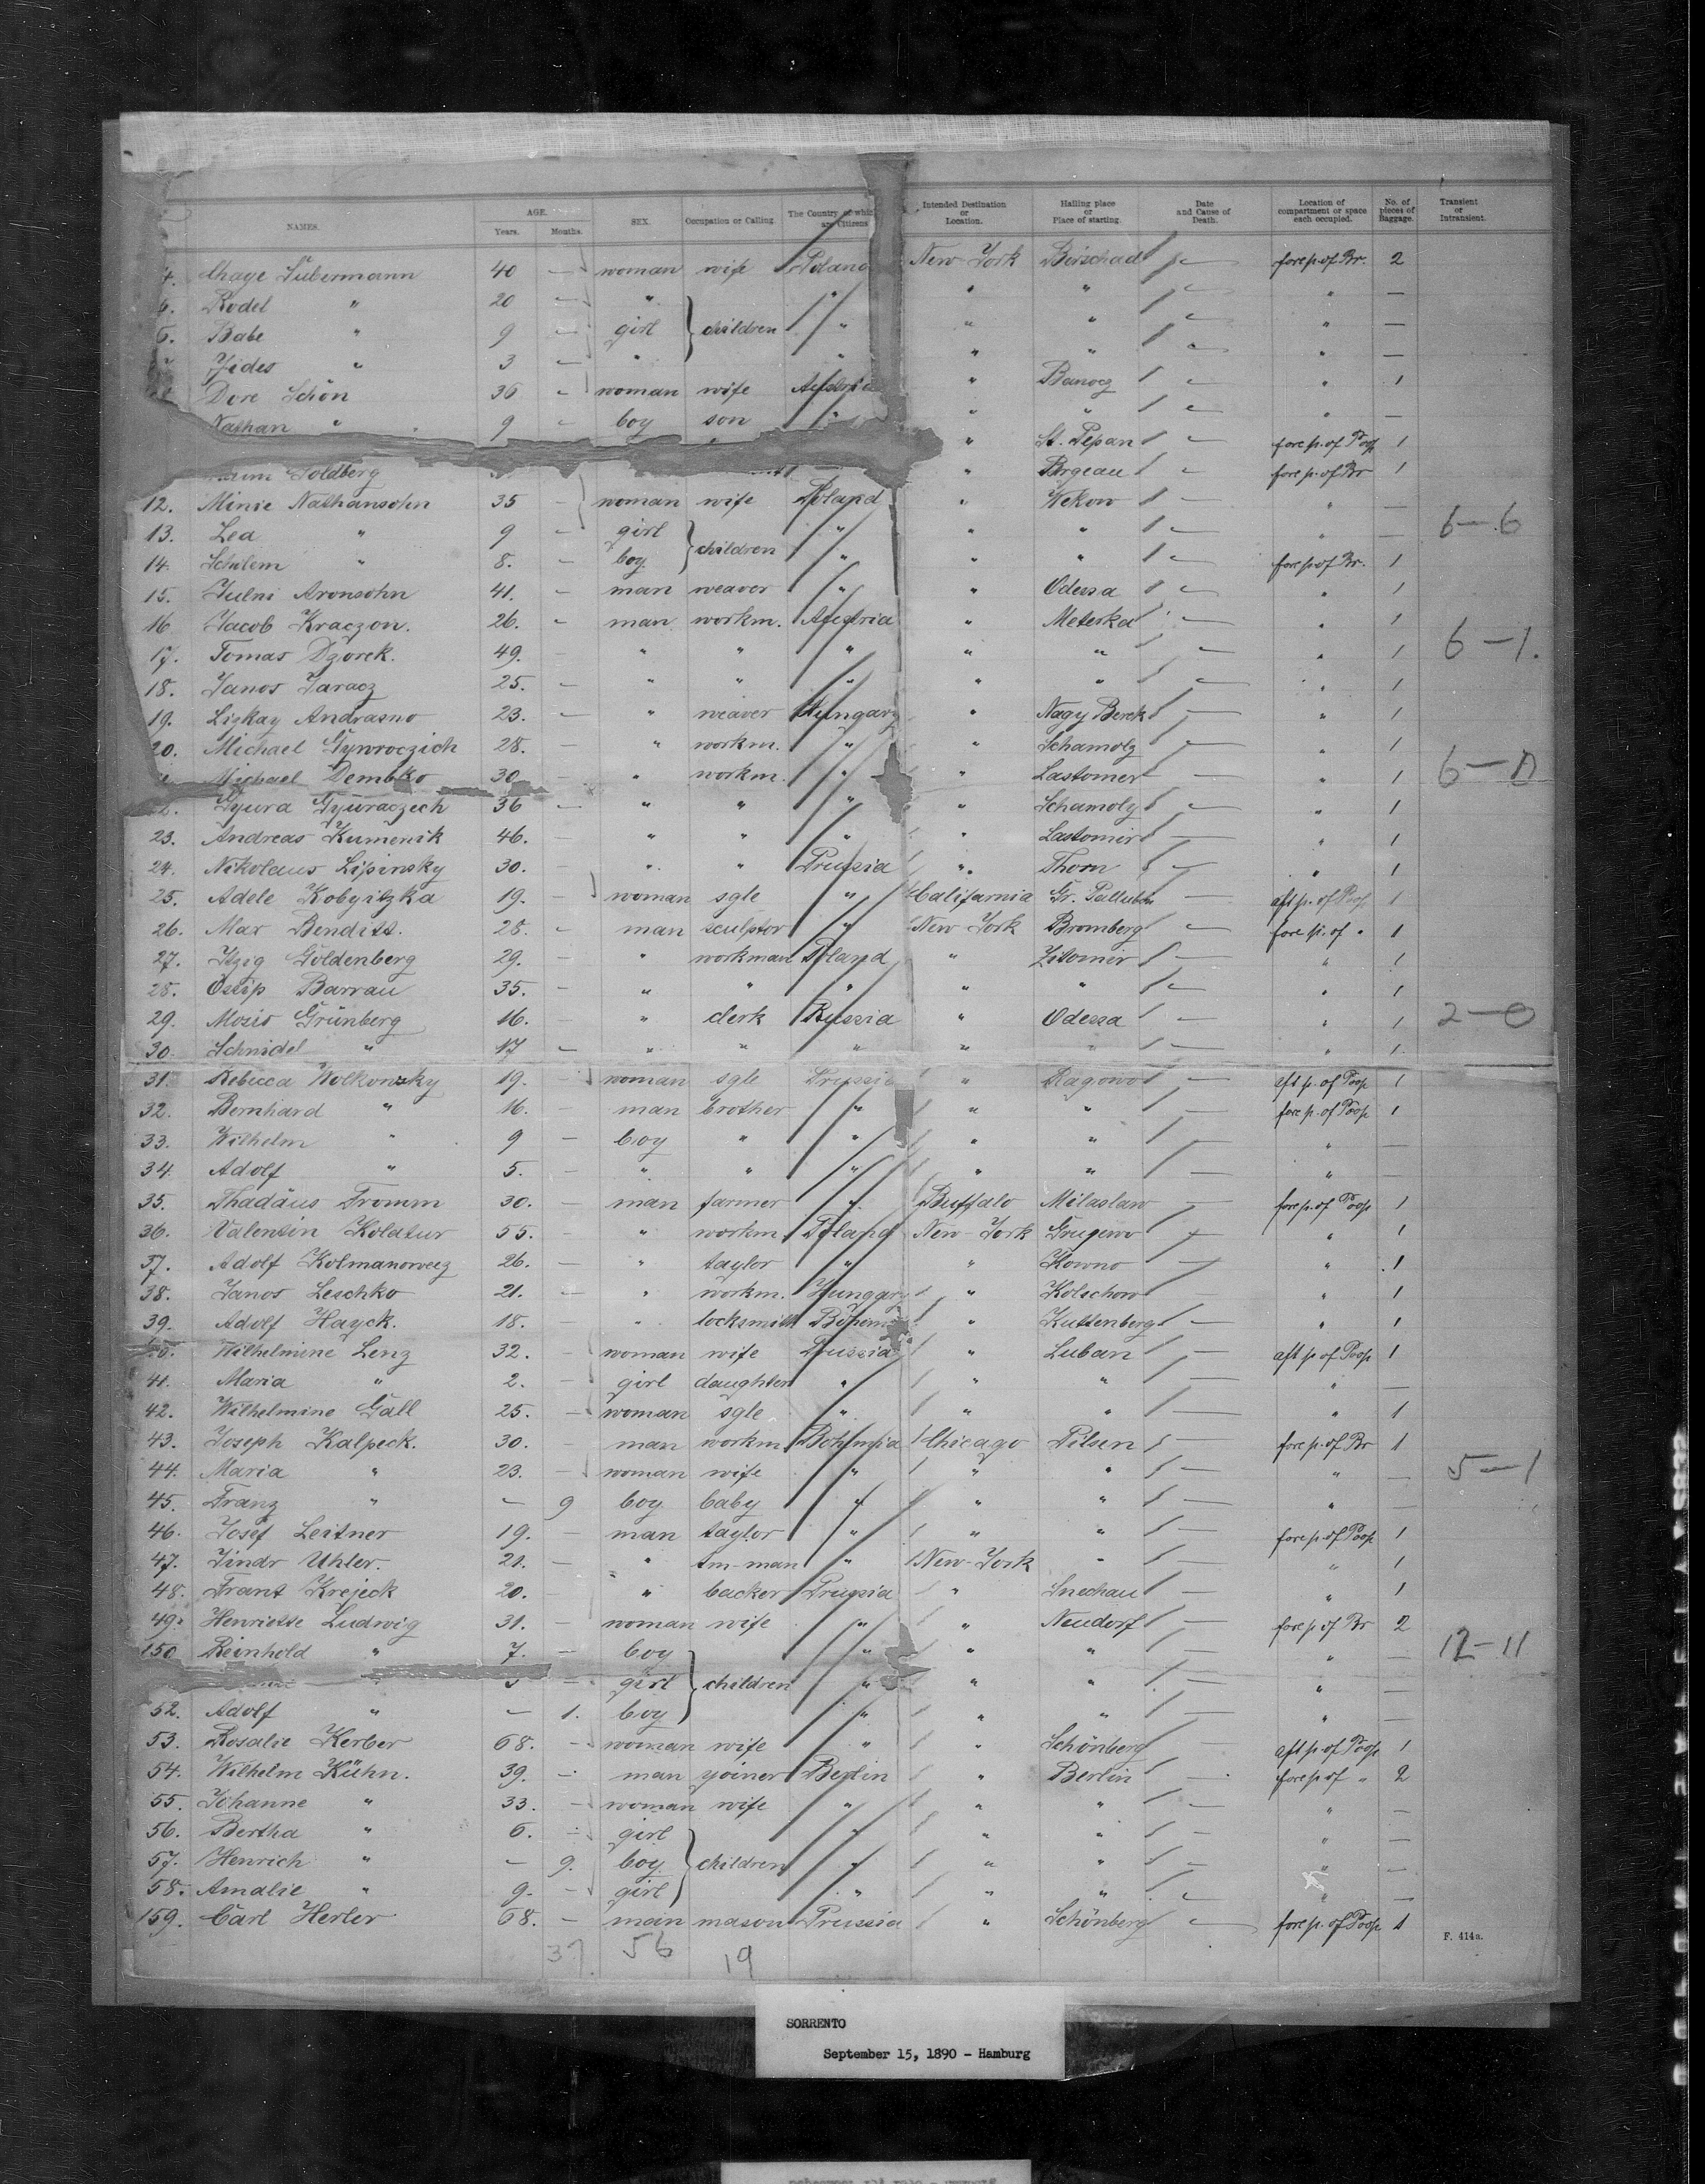 NAMES. AGE. Years. Months. SEX. Occupation or Calling. The Country of which are Citizens Intended Destination or Location. Hailing place or Place of starting. Date and Cause of Death. Location of compartment or space each occupied. No. of pieces of Baggage. Transient or Intransient.
4. Chaye Lubermann 40 — woman wife Poland New York Berschad — forep. of Br. 2
Rodel " 20 — " " " " — " —
6. Babe " 9 — girl children " " " — " —
Jides " 3 — " " " " — " —
Dore Schön 36 — woman wife Austria " Banocz — " 1
Nathan " 9 — boy son " " " — " —
" St. Pepan — forep. of Poop 1
Goldberg " Brgeau — forep. of Br 1
12. Minie Nathansohn 35 — woman wife Poland " Wekow — " —
13. Lea " 9 — girl children " " " — " — 6—6
14. Schulem " 8. — boy " " " — forep. of Br. 1
15. Julni Aronsohn 41. — man weaver " " Odessa — " 1
16 Jacob Kraczon. 26. — man workm. Austria " Meterka — " 1
17. Tomas Dzorek. 49. — " " " " " — " 1 6—1.
18. Janos Jaracz 25. — " " " " " — " 1
19. Liskay Andrasno 23. — " weaver Hungary " Nagy Berek — " 1
20. Michael Gynroczich 28. — " workm. " " Schamolz — " 1
Michael Dembko 30 — " workm. " " Lastomer — " 1 6—0
22. Gyura Gyuraczech 36 — " " " " Schamoly — " 1
23. Andreas Kumenik 46. — " " " " Lastomir — " 1
24. Nikolaus Lipinsky 30. — " " Prussia " Thorn — " 1
25. Adele Kobyitzka 19. — woman sgle " California Gr. — aft p. of Poop 1
26. Max Benditt. 28. — man sculptor " New York Bromberg — fore p. of " 1
27. Itzig Goldenberg 29. — " workman Poland " Zitomir — " 1
28. Ossip Barrau 35. — " " " " " — " 1
29. Mosis Grünberg 16. — " clerk Russia " Odessa — " 1 2—0
30. Schmidel " 17 — " " " " " — " 1
31. Rebecca Wolkowsky 19. — woman sgle Prussia " Ragowo — aft p. of Poop 1
32. Bernhard " 16. — man brother " " " — fore p. of Poop 1
33. Wilhelm " 9 — boy " " " " — " —
34. Adolf " 5. — " " " " " — " —
35. Thadäus Fromm 30. — man farmer " Buffalo Milaslaw — forep. of Poop 1
36. Valentin Kolatur 55. — " workm Poland New-York Grugewo — " 1
37. Adolf Kolmanowicz 26. — " taylor " " Kowno — " 1
38. Janos Leschko 21. — " workm. Hungary " Kolschow — " 1
39. Adolf Hayck. 18. — " locksmith Bohemia " Kuttenberg — " 1
40. Wilhelmine Lenz 32. — woman wife Prussia " Luban — aft p. of Poop 1
41. Maria " 2. — girl daughter " " " — " —
42. Wilhelmine Gall 25. — woman sgle " " " — " 1
43. Joseph Kalpeck. 30. — man workm Bohemia Chicago Pilsen — fore p. of Br 1
44. Maria " 23. — woman wife " " " — " — 5—1
45. Franz " — 9 boy baby " " " — " —
46. Josef Leitner 19. — man taylor " " " — forep. of Poop 1
47. Jindr Uhler. 21. — " tm-man " New-York " — " 1
48. Frant Krejeck 20. — " backer Prussia " Snechau — " 1
49. Henriette Ludwig 31. — woman wife " " Neudorf — forep. of Br 2
150 Reinhold " 7. — boy children " " " — " — 12—11
" girl " " " — " —
52. Adolf " — 1. boy " " " — " —
53. Rosalie Kerber 68. — woman wife " " Schönberg aft p. of Poop 1
54. Wilhelm Kühn. 39. — man yoiner Berlin " Berlin — forep. of " 2
55. Johanne " 33. — woman wife " " " — " —
56. Bertha " 6. — girl children " " " — " —
57. Henrich " — 9. boy " " " — " —
58. Amalie " 9. — girl " " " — " —
159. Carl Herler 68. — man mason Prussia " Schönberg — forep. of Poop 1
37 56 19
F. 414a.
SORRENTO
September 15, 1890 - Hamburg